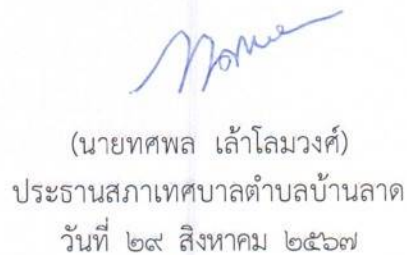 (นายทศพล เล้าโลมวงศ์)
ประธานสภาเทศบาลตำบลบ้านลาด
วันที่ ๒๙ สิงหาคม ๒๕๖๗